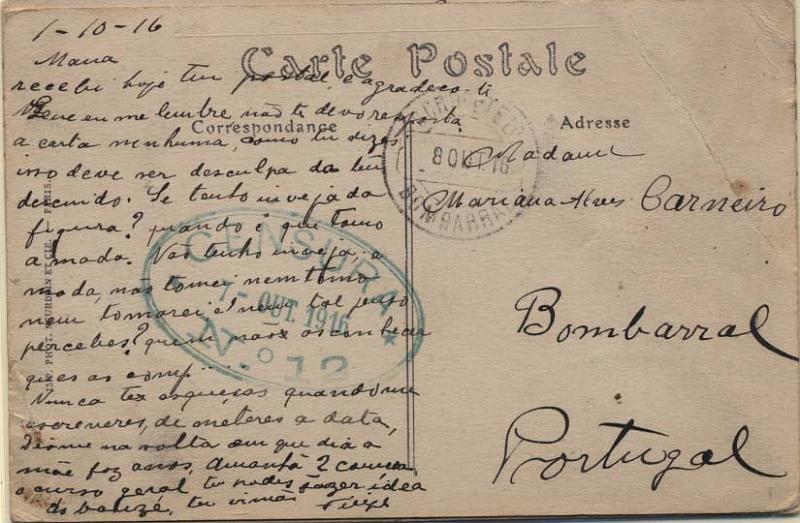 1-10-16
Carte Postale
Maria
recebi hoje teu postal, e agradeço-te
Correspondance
Adresse
me lembre não te devo resposta
a carta nenhuma, como tu dizes
isso deve ser desculpa da teu
descuido. Se tenho inveja da
figura? quando é que tomo
a moda. Não tenho inveja, a
moda, não tomei nem tomo
nem tomarei e nem tal penso
percebes? quem não os conhecer
que os comp....
Nunca te esqueças quando me
escreveres, de meteres a data,
Dis-me na volta em que dia a
mãe faz anos, amanhã 2 começa
o curso geral, tu podes fazer idea
do banzé, teu irmão
Madame
Mariana Alves Carneiro
Bombarral
Portugal
8 OUT. 16
BOMBARRAL
CENSURA
7- OUT. 1916
N.º 12